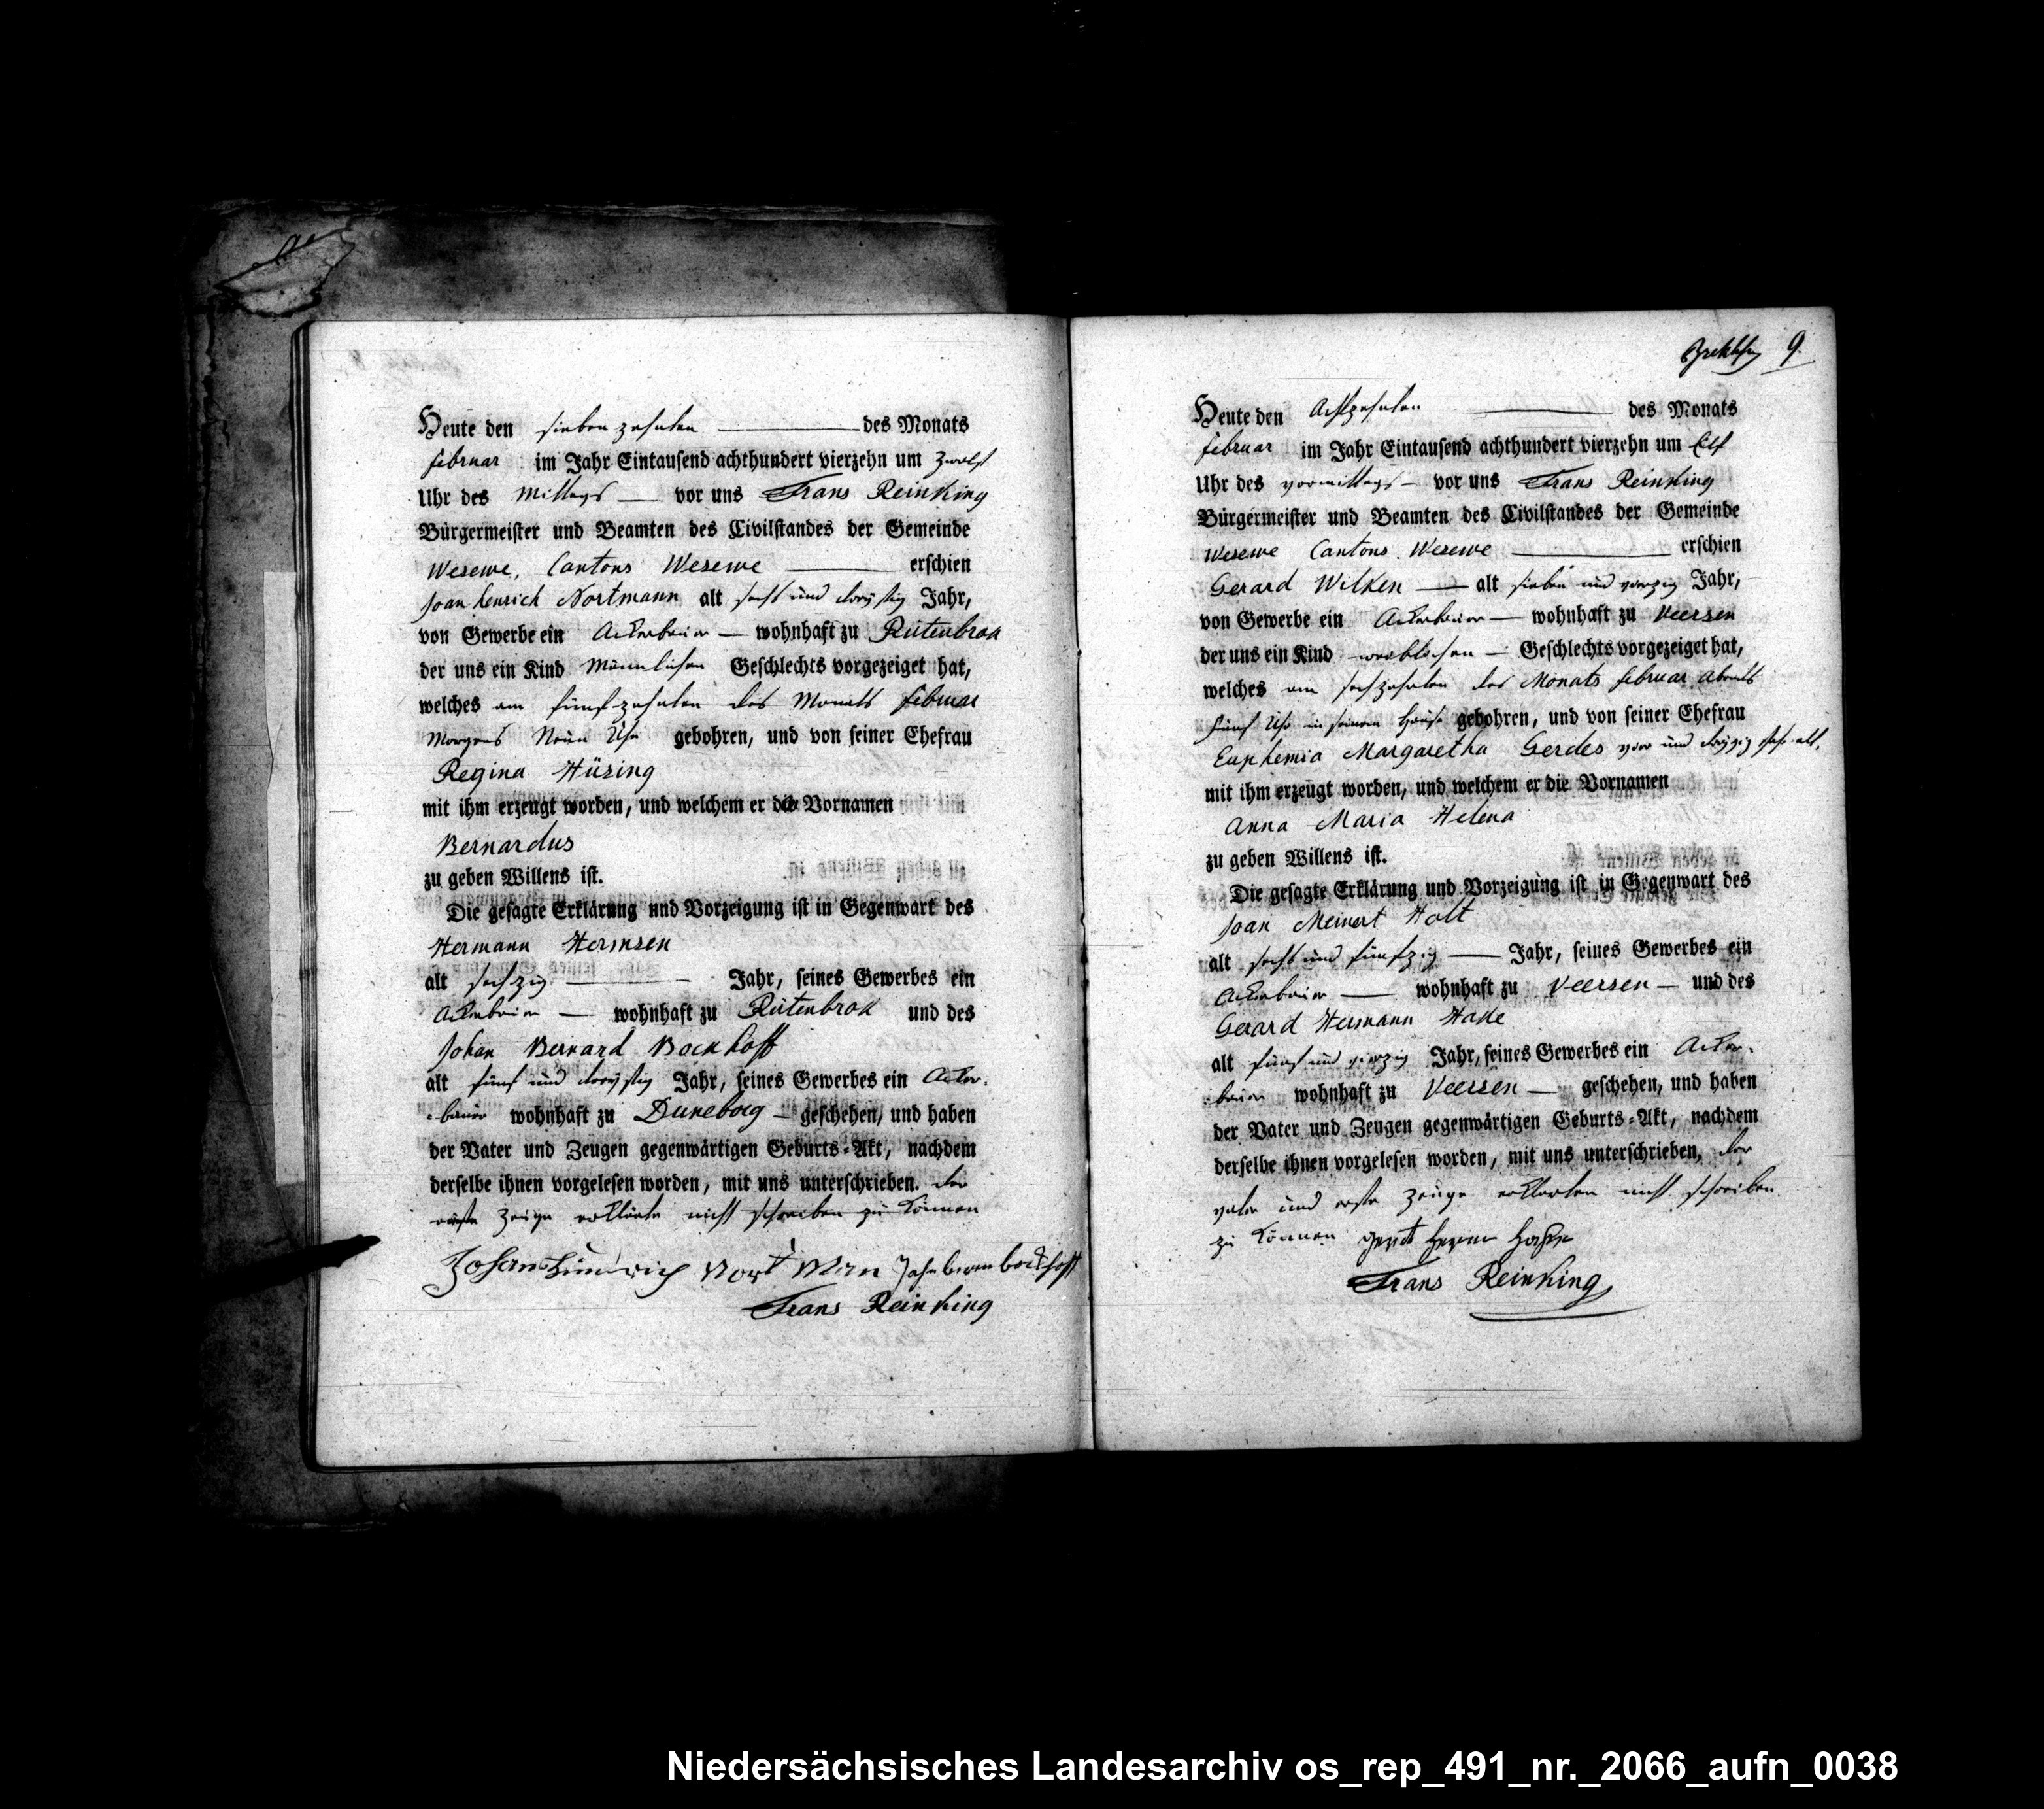 Heute den siebenzehnten des Monats
februar im Jahr Eintausend achthundert vierzehn um zwolf
Uhr des Mittags vor uns Frans Reinking
Bürgermeister und Beamten des Civilstandes der Gemeinde
Wesewe, Cantons Wesewe erschien
Joan henrich Nortmann alt sechs und dreÿstig Jahr,
von Gewerbe ein Ackerbauer wohnhaft zu Rütenbrok
der uns ein Kind Männlichen Geschlechts vorgezeiget hat,
welches am fünfzehnten des Monats februar
Morgens Neün Uhr gebohren, und von seiner Ehefrau
Regina Hüsing
mit ihm erzeugt worden, und welchem er die Vornamen
Bernardus
zu geben Willens ist.
Die gesagte Erklärung und Vorzeigung ist in Gegenwart des
Hermann Hermsen
alt sechzig Jahr, seines Gewerbes ein
Ackerbauer wohnhaft zu Rütenbrok und des
Johan Bernard Bockhoff
alt fünf und dreÿstig Jahr, seines Gewerbes ein Acker-
-bauer wohnhaft zu Duneborg geschehen, und haben
der Vater und Zeugen gegenwärtigen Geburts-Akt, nachdem
derselbe ihnen vorgelesen worden, mit uns unterschrieben. der
erste Zeuge erklärte nicht schreiben zu können
Johan Hinnrich Nort Man Jahn beren bockhoff
Frans Reinking
9.
Heute den Achtzehnten des Monats
februar im Jahr Eintausend achthundert vierzehn um Elf
Uhr des vormittags vor uns Frans Reinking
Bürgermeister und Beamten des Civilstandes der Gemeinde
Wesewe Cantons Wesewe erschien
Gerard Wilken alt sieben und vierzig Jahr,
von Gewerbe ein Ackerbauer wohnhaft zu Veersen
der uns ein Kind weiblichen Geschlechts vorgezeiget hat,
welches am sechzehnten des Monats februar abends
fünf Uhr in seinem Hause gebohren, und von seiner Ehefrau
Euphemia Margaretha Gerdes vier und dreÿzig Jahr alt,
mit ihm erzeugt worden, und welchem er die Vornamen
Anna Maria Helena
zu geben Willens ist.
Die gesagte Erklärung und Vorzeigung ist in Gegenwart des
Joan Meinert Holt
alt sechs und fünfzig Jahr, seines Gewerbes ein
Ackerbauer wohnhaft zu Veersen und des
Gerard Hermann Hake
alt fünf und vierzig Jahr, seines Gewerbes ein Acker-
-bauer wohnhaft zu Veersen geschehen, und haben
der Vater und Zeugen gegenwärtigen Geburts-Akt, nachdem
derselbe ihnen vorgelesen worden, mit uns unterschrieben, der
vater und erste Zeuge erklärten nicht schreiben
zu können
Frans Reinking
Niedersächsisches Landesarchiv os_rep_491_nr._2066_aufn_0038